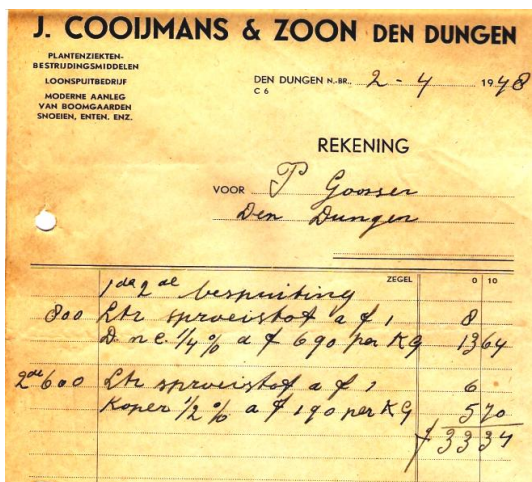 J. COOIJMANS & ZOON DEN DUNGEN
PLANTENZIEKTEN-
BESTRIJDINGSMIDDELEN
LOONSPUITBEDRIJF
MODERNE AANLEG
VAN BOOMGAARDEN
SNOEIEN, ENTEN. ENZ.
DEN DUNGEN N.-BR., 2 - 4 1948
C 6
REKENING
VOOR P Goosser
Den Dungen
ZEGEL 0 10
1de 2de bespuiting
800 Ltr sproeistof a f 1 8
D. n c. 1/4 % a f 690 per KG 1364
2de 600 Ltr sproeistof a f 1 6
Koper 1/2 % a f 190 per KG 570
f 3334